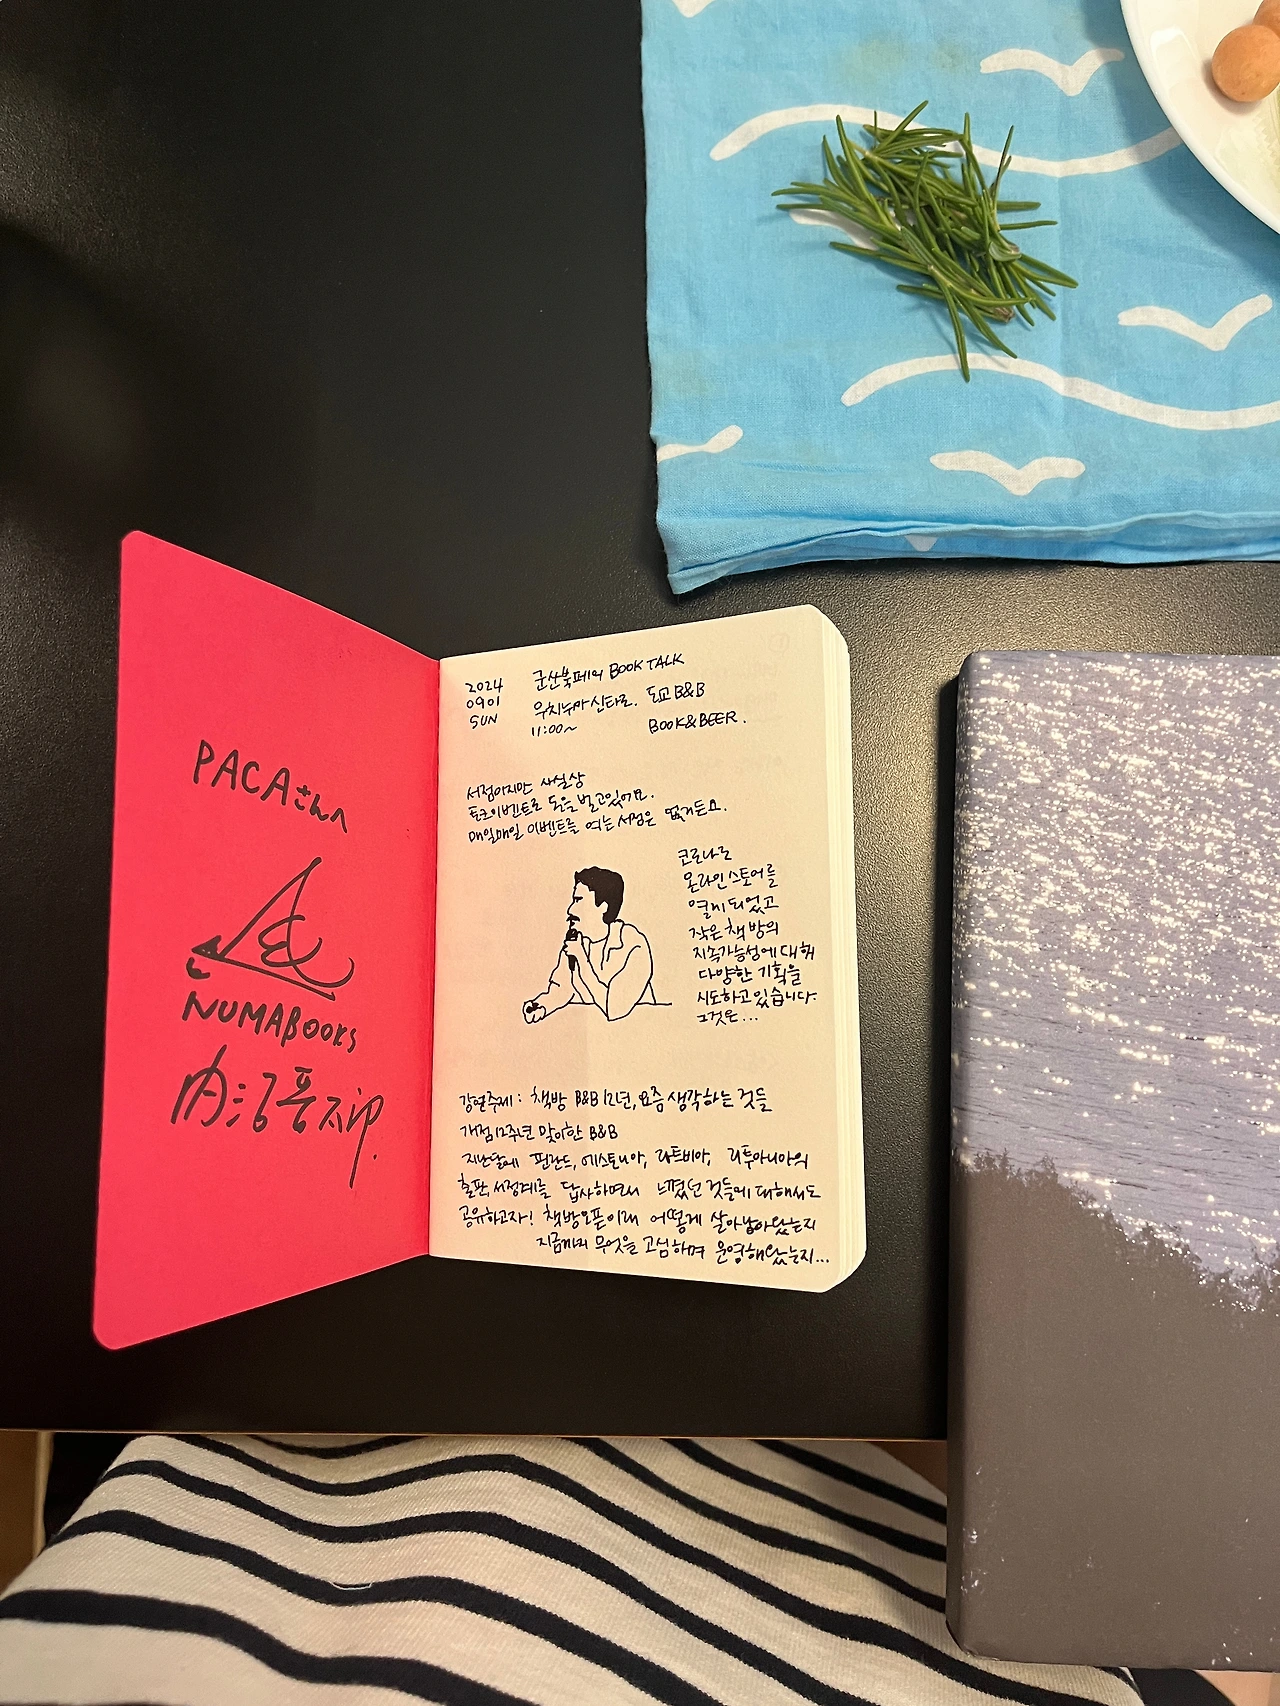 PACAさんへ
NUMABOOKS
内沼晋太郎
2024
0901
SUN
군산북페어 BOOK TALK
우치누마 신타로. 도쿄 B&B
11:00~ BOOK&BEER.
서점이지만 사실상
토크이벤트로 돈을 벌고있어요.
매일매일 이벤트를 여는 서점은 없거든요.
코로나로
온라인 스토어를
열게 되었고
작은 책방의
지속가능성에 대해
다양한 기획을
시도하고 있습니다.
그것은...
강연주제: 책방 B&B 12년, 요즘 생각하는 것들
개점 12주년 맞이한 B&B
지난달에 핀란드, 에스토니아, 라트비아, 리투아니아의
출판, 서점계를 답사하면서 느꼈던 것들에 대해서도
공유하고자! 책방오픈이래 어떻게 살아남아왔는지
지금까지 무엇을 고심하며 운영해왔는지...